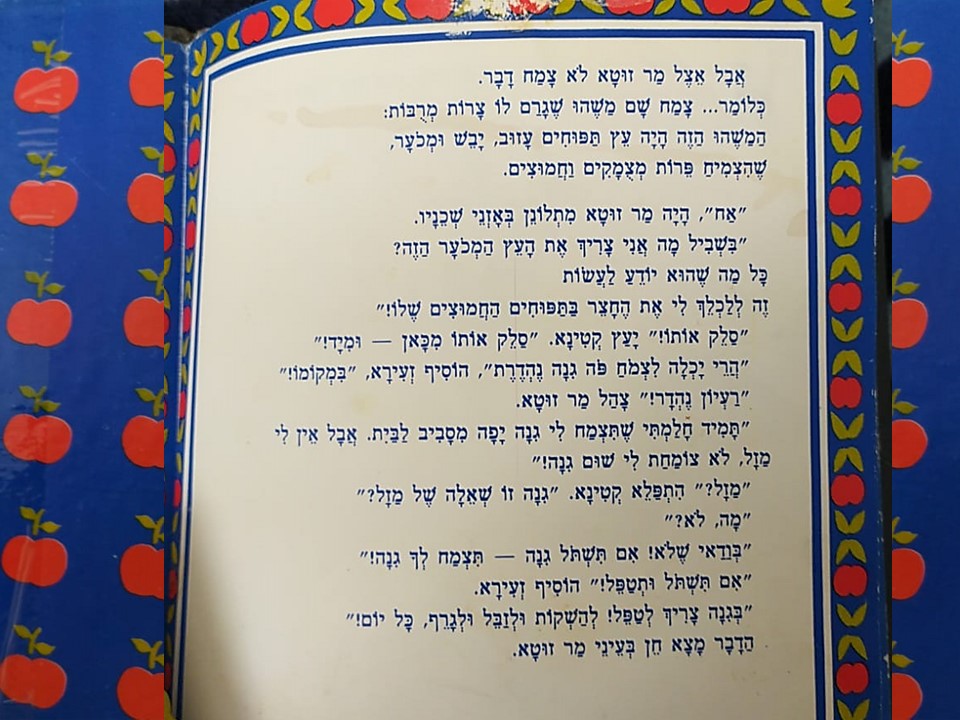 אֲבָל אֵצֶל מַר זוּטָא לֹא צָמַח דָבָר.
כְּלוֹמַר... צָמַח שָׁם מַשֶּׁהוּ שֶׁגָּרַם לוֹ צָרוֹת מְרֻבּוֹת:
הַמַּשֶּׁהוּ הַזֶּה הָיָה עֵץ תַּפּוּחִים עָזוּב, יָבֵשׁ וּמְכֹעָר,
שֶׁהִצְמִיחַ פֵּרוֹת מְצֻמָּקִים וַחֲמוּצִים.
"אַח", הָיָה מַר זוּטָא מִתְלוֹנֵן בְּאָזְנֵי שְׁכֵנָיו.
"בִּשְׁבִיל מָה אֲנִי צָרִיךְ אֶת הָעֵץ הַמְכֹעָר הַזֶּה?
כָּל מַה שֶּׁהוּא יוֹדֵעַ לַעֲשׂוֹת
זֶה לְלַכְלֵךְ לִי אֶת הֶחָצֵר בַּתַּפּוּחִים הַחֲמוּצִים שֶׁלּוֹ!"
"סַלֵּק אוֹתוֹ!" יָעַץ קְטִינָא. "סַלֵּק אוֹתוֹ מִכָּאן — וּמִיָּד!"
"הֲרֵי יָכְלָה לִצְמֹחַ פֹּה גִנָּה נֶהְדֶּרֶת", הוֹסִיף זְעִירָא, "בִּמְקוֹמוֹ!"
"רַעְיוֹן נֶהְדָּר!" צָהַל מַר זוּטָא.
"תָּמִיד חָלַמְתִּי שֶׁתִּצְמַח לִי גִנָּה יָפָה מִסָּבִיב לַבַּיִת. אֲבָל אֵין לִי
מַזָּל, לֹא צוֹמַחַת לִי שׁוּם גִּנָּה!"
"מַזָּל?" הִתְפַּלֵּא קְטִינָא. "גִנָּה זוֹ שְׁאֵלָה שֶׁל מַזָּל?"
"מָה, לֹא?"
"בְּוַדַּאי שֶׁלֹּא! אִם תִּשְׁתֹּל גִּנָּה — תִּצְמַח לְךָ גִּנָּה!"
"אִם תִּשְׁתֹּל וּתְטַפֵּל!" הוֹסִיף זְעִירָא.
"בְּגִנָּה צָרִיךְ לְטַפֵּל! לְהַשְׁקוֹת וּלְזַבֵּל וּלְגָרֵף, כָּל יוֹם!"
הַדָּבָר מָצָא חֵן בְּעֵינֵי מַר זוּטָא.